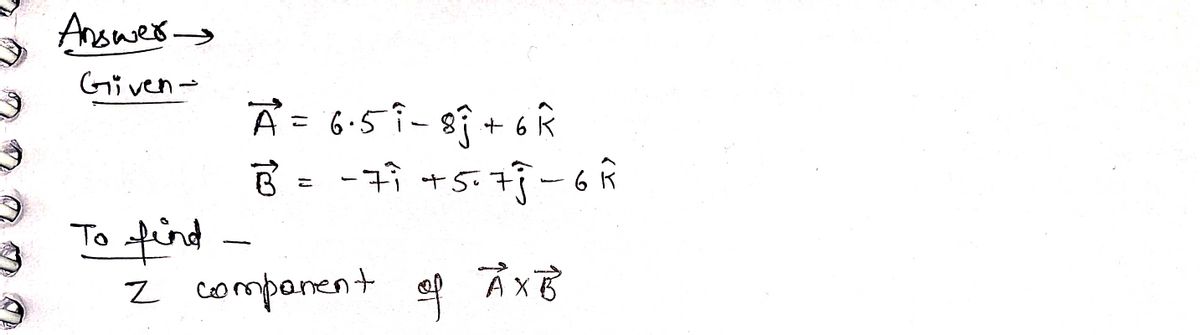 Answer →
Given -
A⃗ = 6.5 î - 8ĵ + 6 k̂
B⃗ = -7î + 5.7ĵ - 6 k̂
To find -
Z component of A⃗ X B⃗